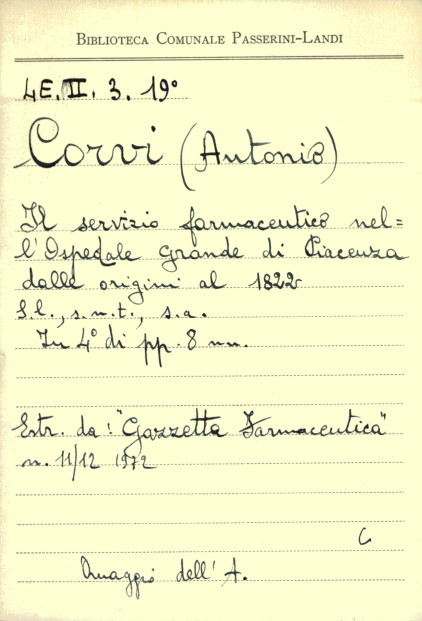 BIBLIOTECA COMUNALE PASSERINI-LANDI
4E. II. 3. 19°
Corvi (Antonio)
Il servizio farmaceutico nel=
l'Ospedale Grande di Piacenza
dalle origini al 1822
S.l., s.n.t., s.a.
In 4° di pp. 8 nn.
Estr. da: "Gazzetta Farmaceutica"
n. 11/12 1972
C
Omaggio dell'A.